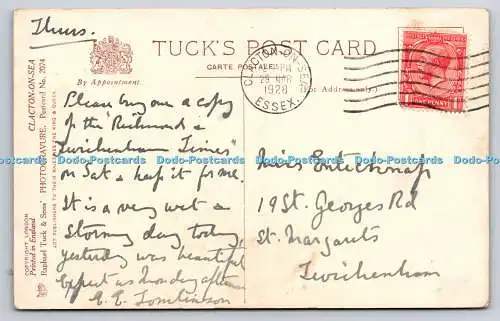 Thurs.
TUCK'S POST CARD
CARTE POSTALE
By Appointment.
(For Address only.)
CLACTON-ON-SEA
PM
29 MAR
1928
ESSEX.
ONE PENNY
CLACTON-ON-SEA
Raphael Tuck & Sons' PHOTOGRAVURE. Postcard No. 2074
ART PUBLISHERS TO THEIR MAJESTIES THE KING & QUEEN
COPYRIGHT LONDON
Printed in England
Please buy me a copy
of the "Richmond &
Twickenham Times"
on Sat & keep it for me.
It is a very wet &
stormy day today,
yesterday was beautiful
Expect us Monday afternoon
E. E. Tomlinson
Miss Enticknap
19 St. Georges Rd
St. Margarets
Twickenham
Dodo-Postcards Dodo-Postcards Dodo-Postcards Dodo-Postcards Dodo-Postcards